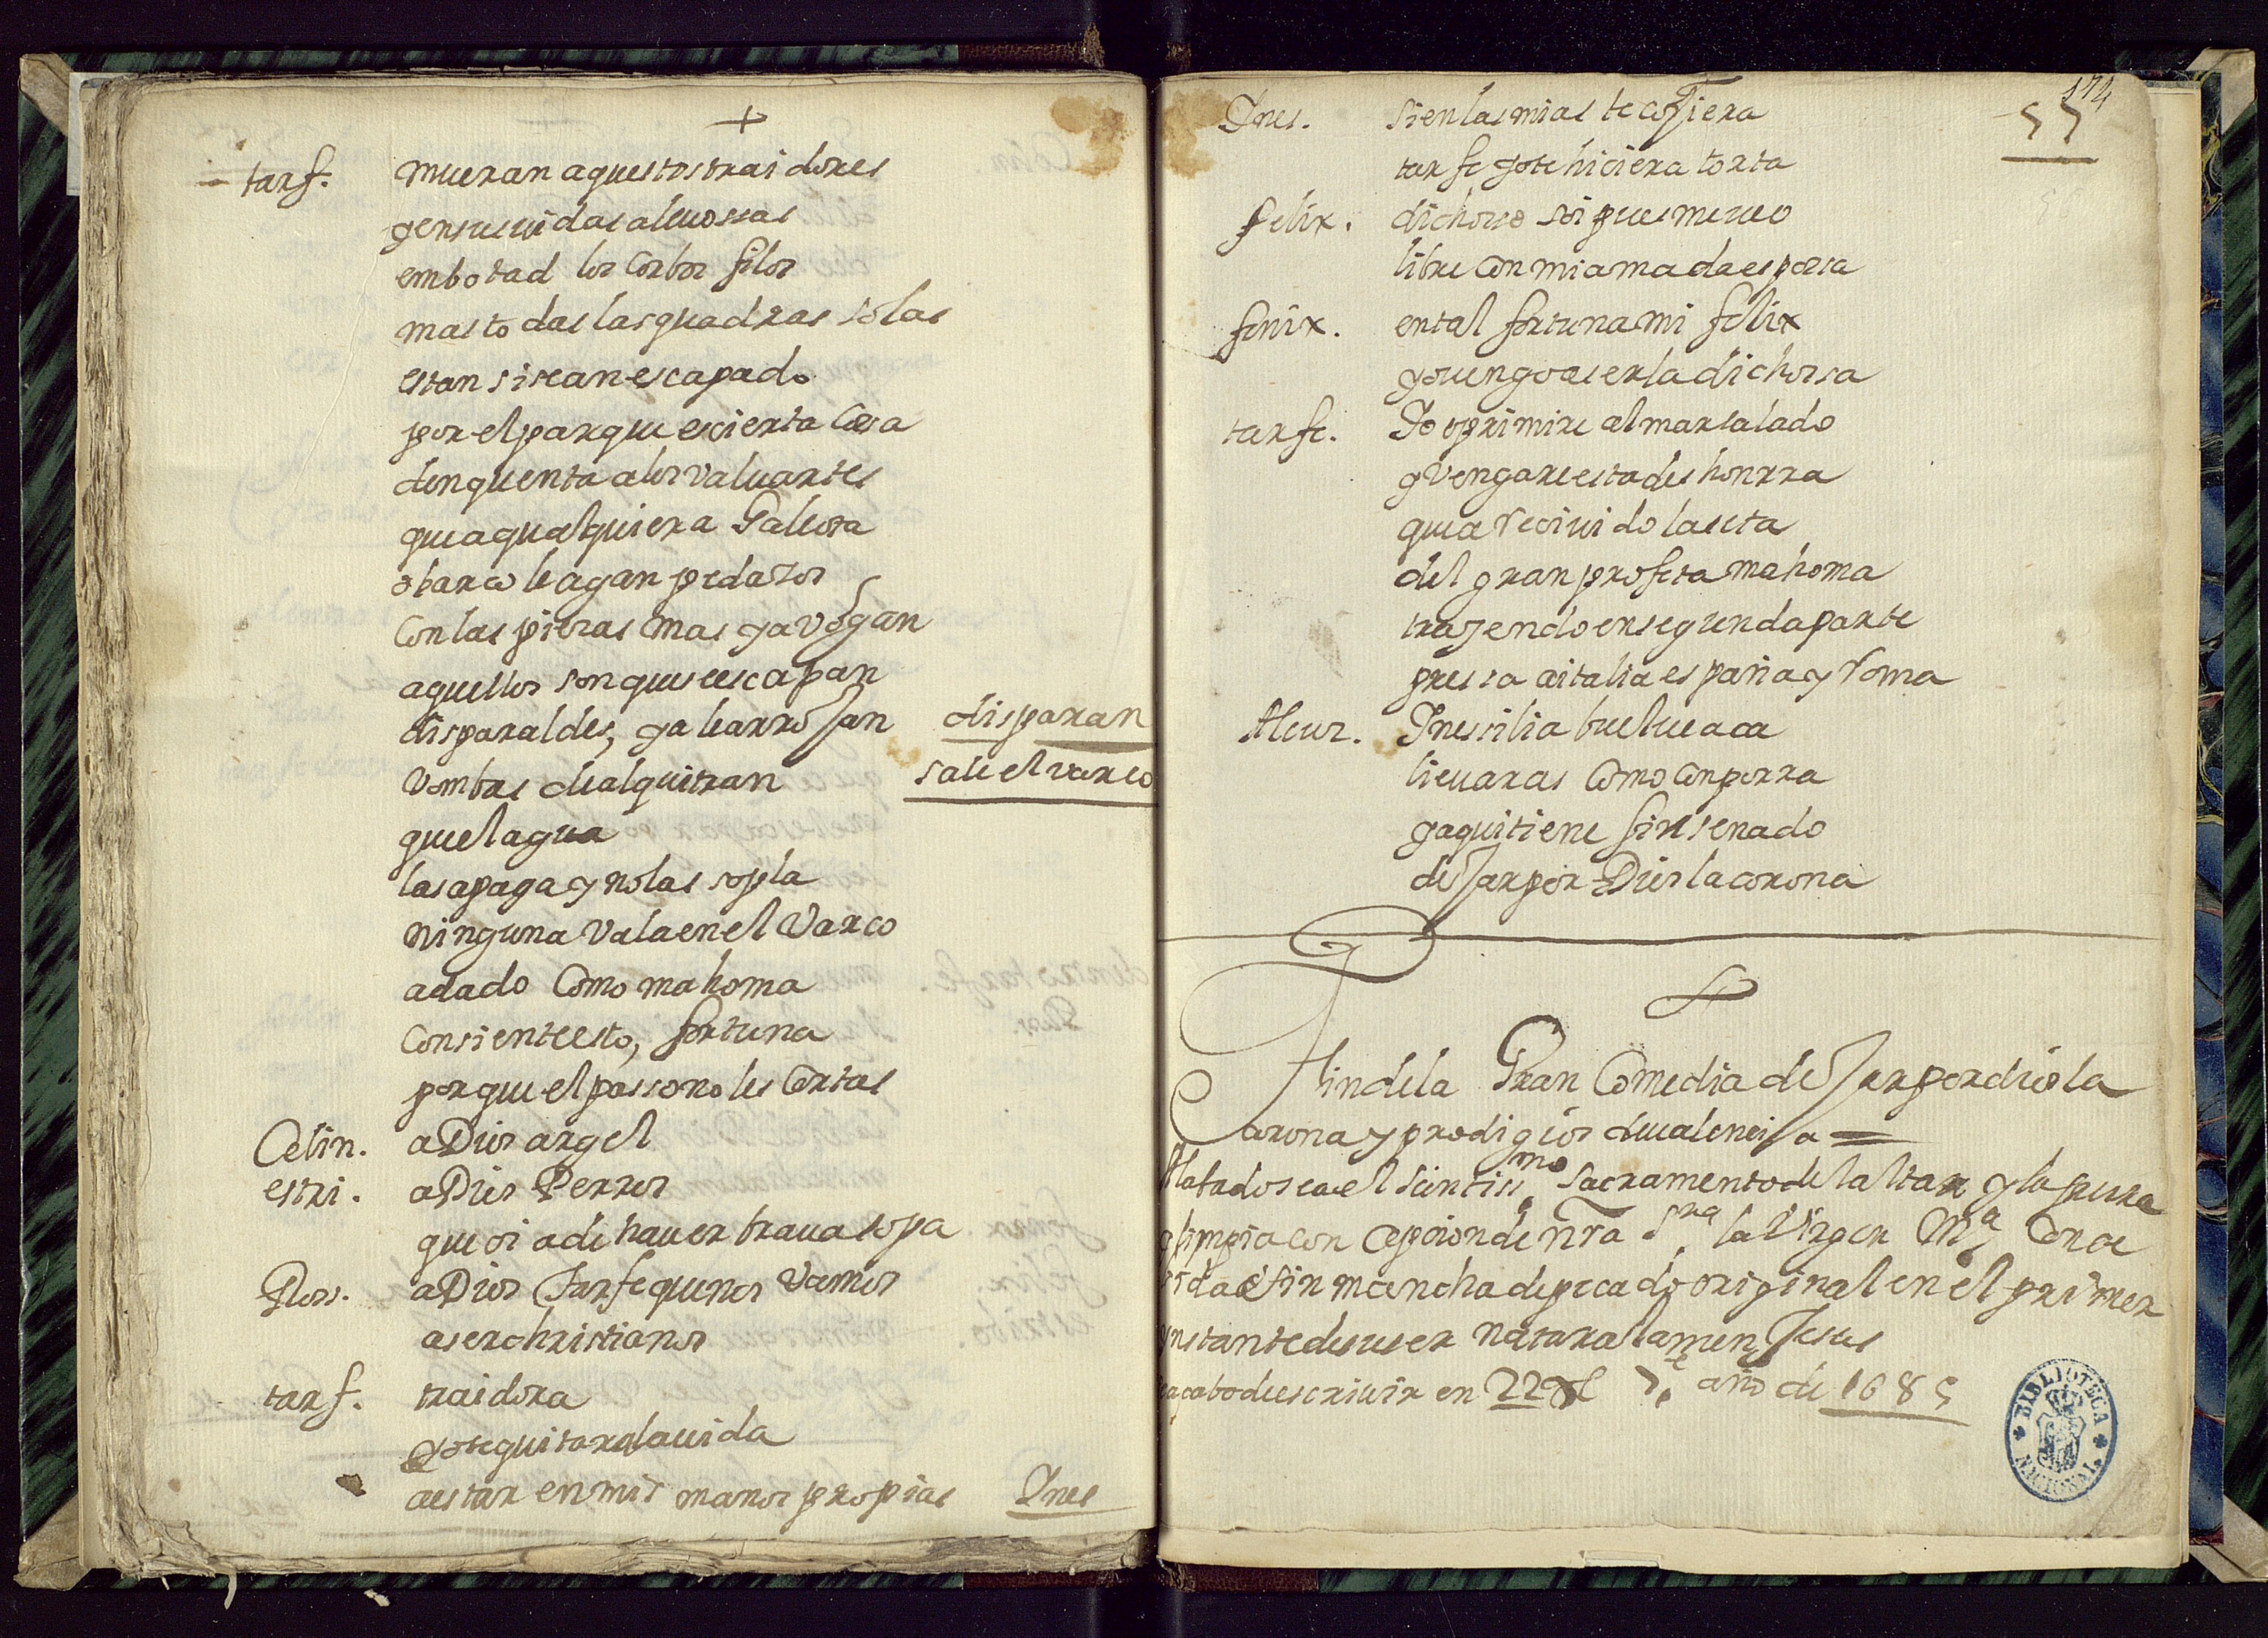 +
tarf. mueran aquestos traidores
y en sus uidas aleuosas
embotad los corbos filos
mas todas las quadras solas
estan si se an escapado
por el parque es cierta cosa
den quenta a los valuartes
que a qualquiera Galeota
o barco le agan pedazos
Con las piezas mas ya vogan
aquellos son que se escapan
disparaldes, ya le arrojan disparan
vombas de alquitran sale el varco
que el agua
las apaga y no las sopla
ninguna vala en el varco
a dado como mahoma
consiente esto, fortuna
porque el passo no les cortas
Celin. a Dios argel
estri. a Dios Perros
que oi a de hauer braua sopa
Flors. a Dios Tarfe que nos vamos
a ser christianos
tarf. traidora
yo te quitara la uida
a estar en mis manos propias Ynes
174
55
Ynes. si en las mias te cojiera
tarfe yo te hiciera torta
felix. dichoso soi pues me ueo
libre con mi amada esposa
fenix. en tal fortuna mi felix
yo uengo a ser la dichosa
tarfe. Yo oprimire al mar salado
y vengare esta deshonrra
que a reciuido la seta
del gran profeta mahoma
trayendo en segunda parte
presa a italia españa y roma
Alcuz. Ynessilia buelue aca
lleuaras como con porra
y aqui tiene fin senado
dejar por Dios la corona
Fin de la Gran Comedia dejar por dios la
Corona y prodigios de ualencia =
Alabado sea el Santissmo Sacramento del altar y la pura
y limpia concepcion de nra Sra la Virgen Ma Conce
vida sin mancha de pecado original en el primer
ynstante de su ser natural amen Jesus
acabo de escriuir en 22 de 7e año de 1685
BIBLIOTECA NACIONAL